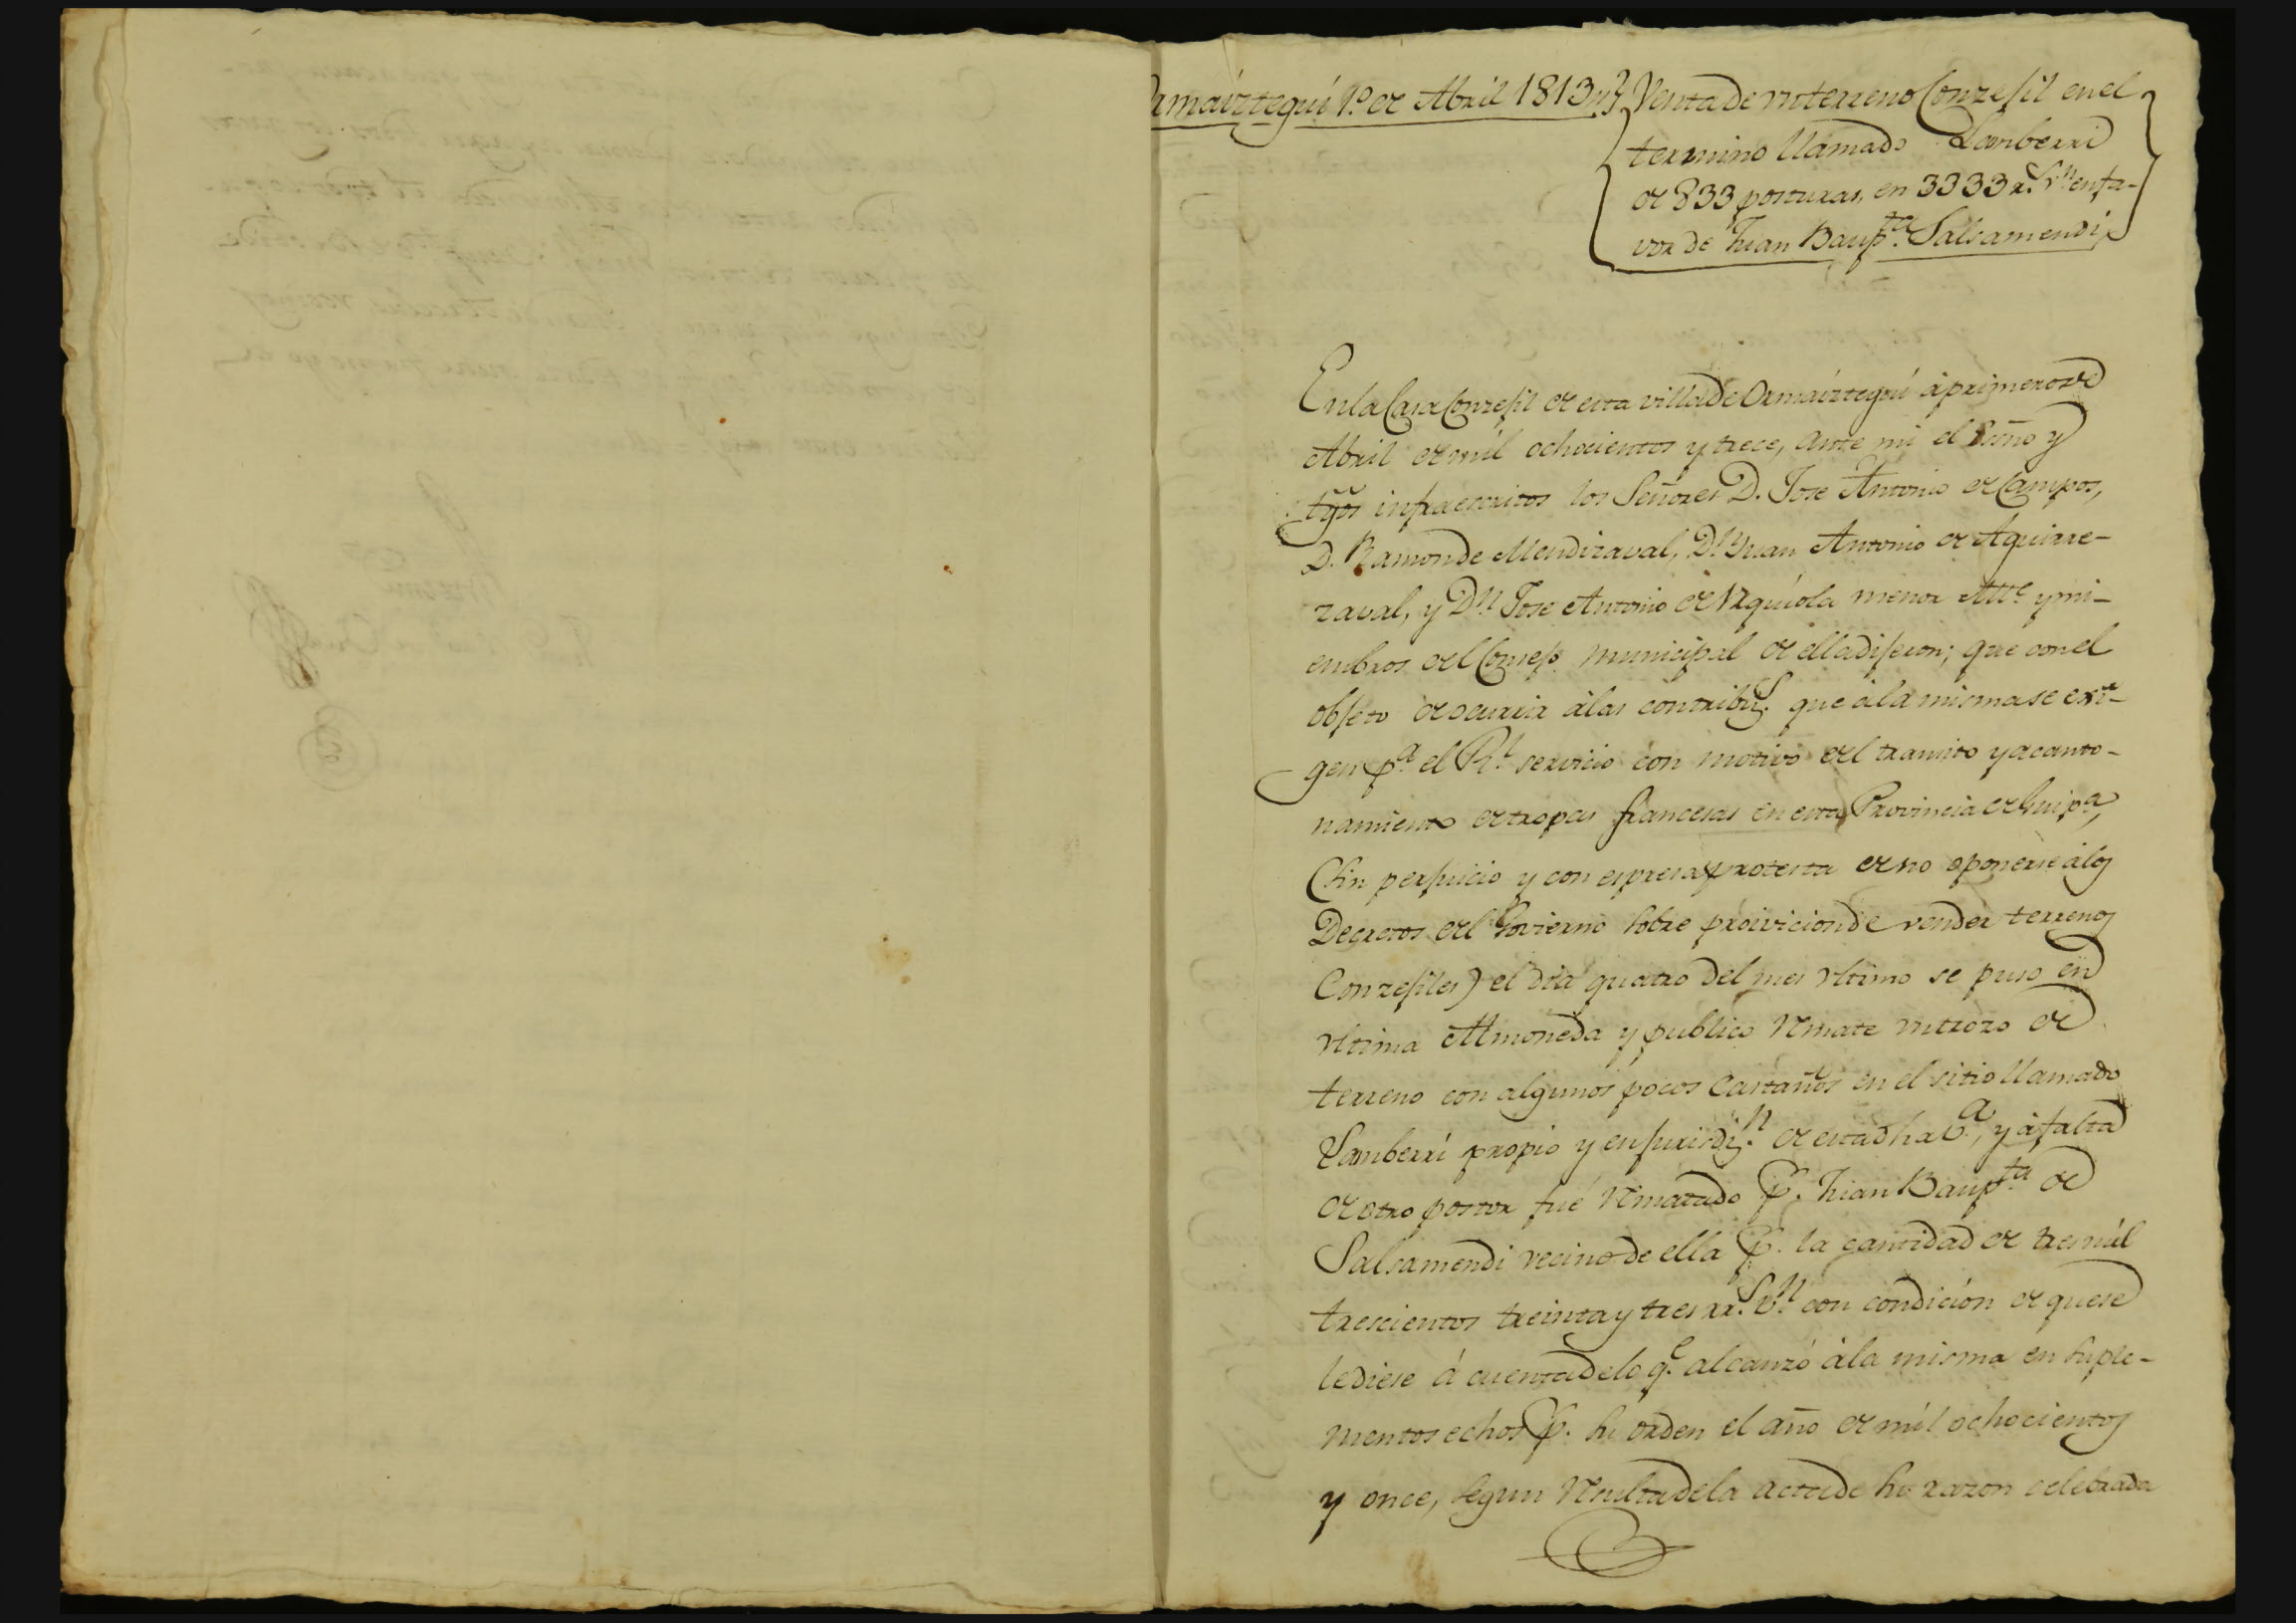 Ormaíztegui 1.º de Abril 1813
Venta de un terreno Conzejil en el
termino llamado Lamberri
de 833 posturas, en 3333 r.s v.n en fa-
vor de Juan Baup.ta Salsamendi
En la Casa Conzejil de esta villa de Ormaíztegui á primero de
Abril de mil ochocientos y trece, ante mi el Escño y
tgos infraescritos los Señores D. Jose Antonio de Campos,
D. Ramon de Mendizaval, D.n Juan Antonio de Aguirre-
zaval, y D.n Jose Antonio de Urquíola menor Alle y mi-
embros del Consejo municipal de ella dijeron; que con el
objeto de ocurrir á las contribu.s que á la misma se exi-
gen p.a el R.l servicio con motivo del transito y acanto-
namiento de tropas francesas en esta Provincia de Guip.a,
(sin perjuicio y con espresa protesta de no oponerse á los
Decretos del Govierno sobre proivicion de vender terrenos
Conzejiles) el dia quatro del mes ultimo se puso en
ultima Almoneda y publico remate un trozo de
terreno con algunos pocos Castaños en el sitio llamado
Lamberri propio y en jurisdi.n de esta dha V.a, y á falta
de otro postor fué rematado p.r Juan Baup.ta de
Salsamendi vecino de ella p.r la cantidad de tres mil
trescientos treinta y tres rr.s v.n con condición de que se
le diese á cuenta de lo q.e alcanzó á la misma en suple-
mentos echos p.r su orden el año de mil ochocientos
y once, segun resulta de la acta de su razon celebrada